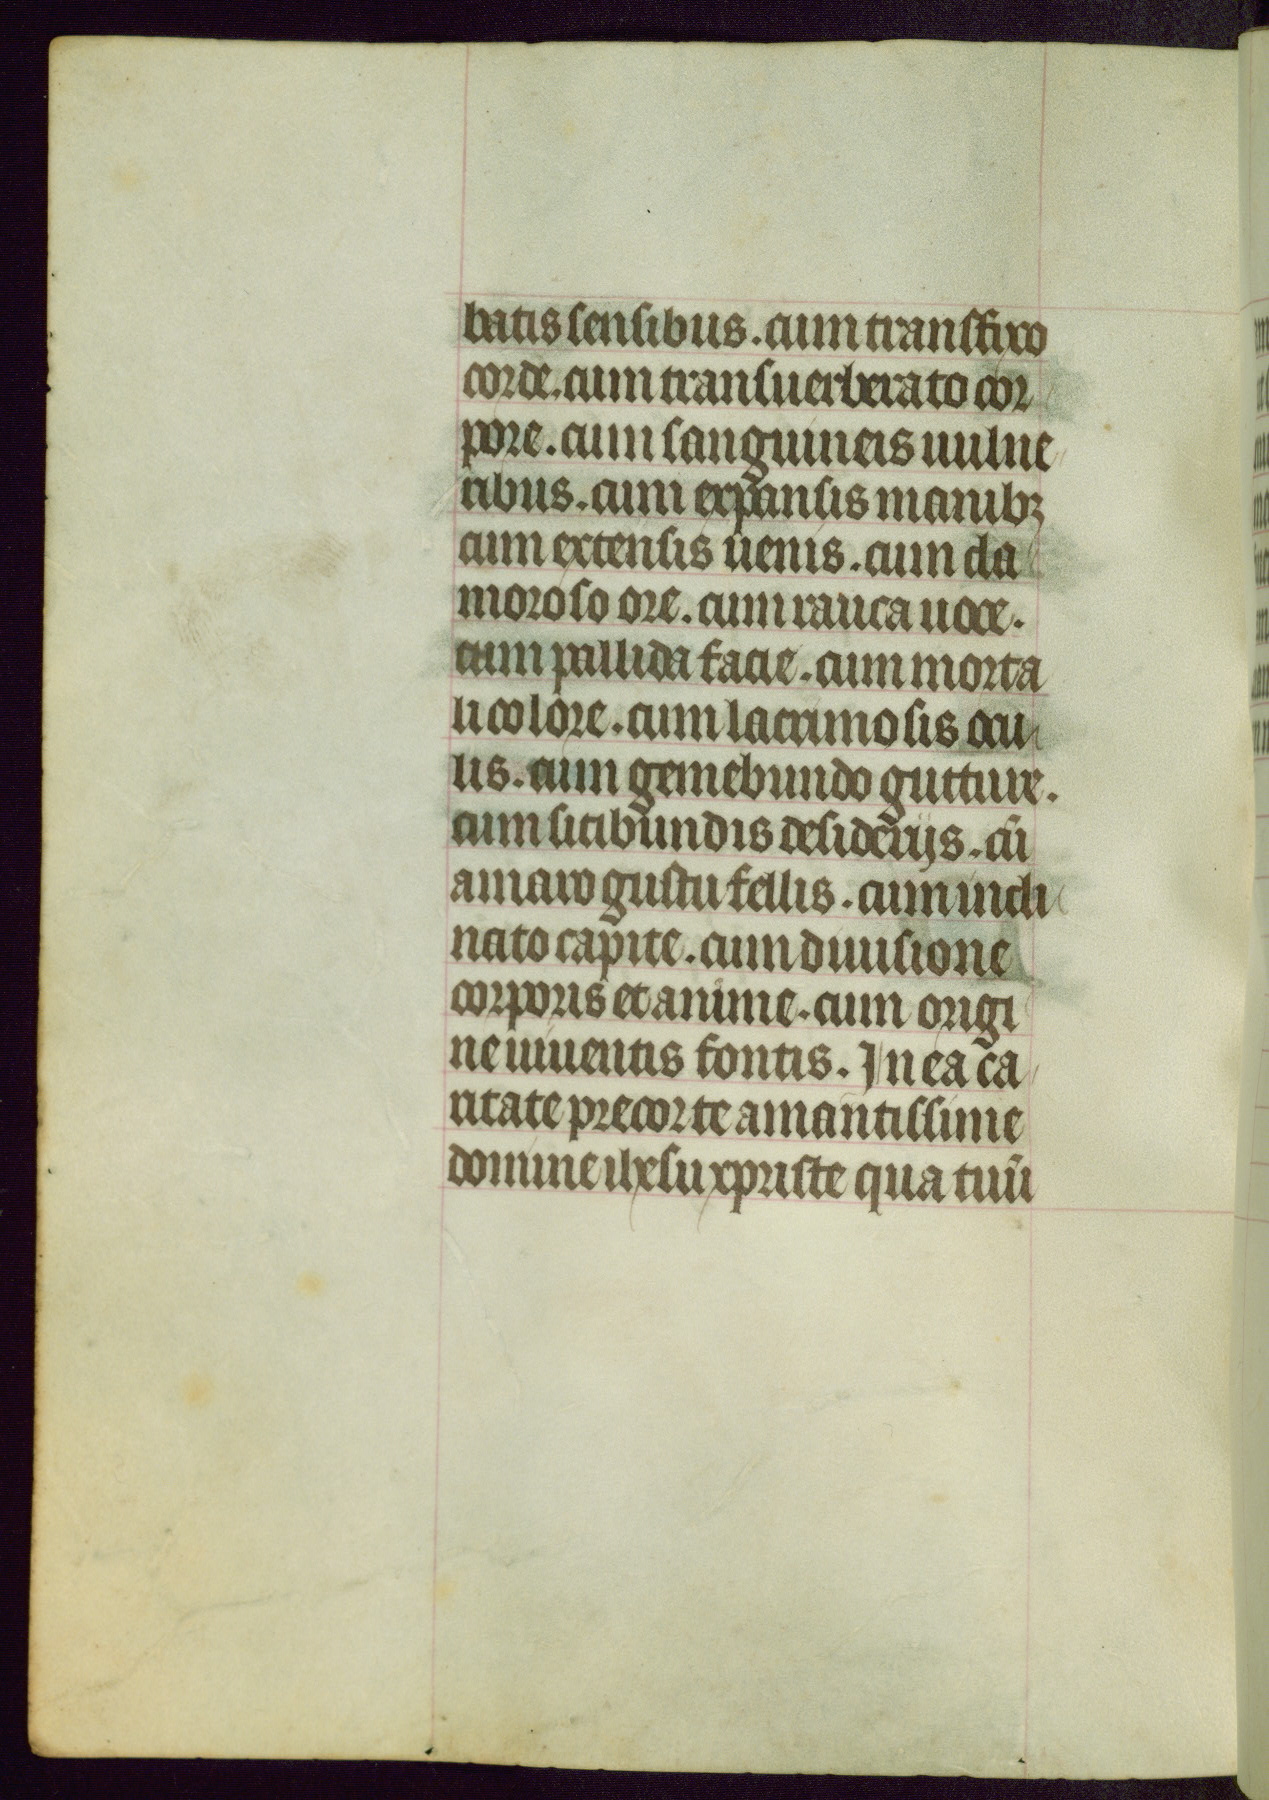 batis sensibus. cum transfixo
corde. cum transuerberato cor
pore. cum sanguineis uulne
ribus. cum expansis manibꝫ
cum extensis uenis. cum cla
moroso ore. cum rauca uoce.
cum pallida facie. cum morta
li colore. cum lacrimosis ocu
lis. cum gemebundo gutture.
cum sitibundis desiderijs. cū
amaro gustu fellis. cum incli
nato capite. cum diuisione
corporis et anime. cum origi
ne uiuentis fontis. In ea ca
ritate precor te amantissime
domine ihesu xpriste qua tuū